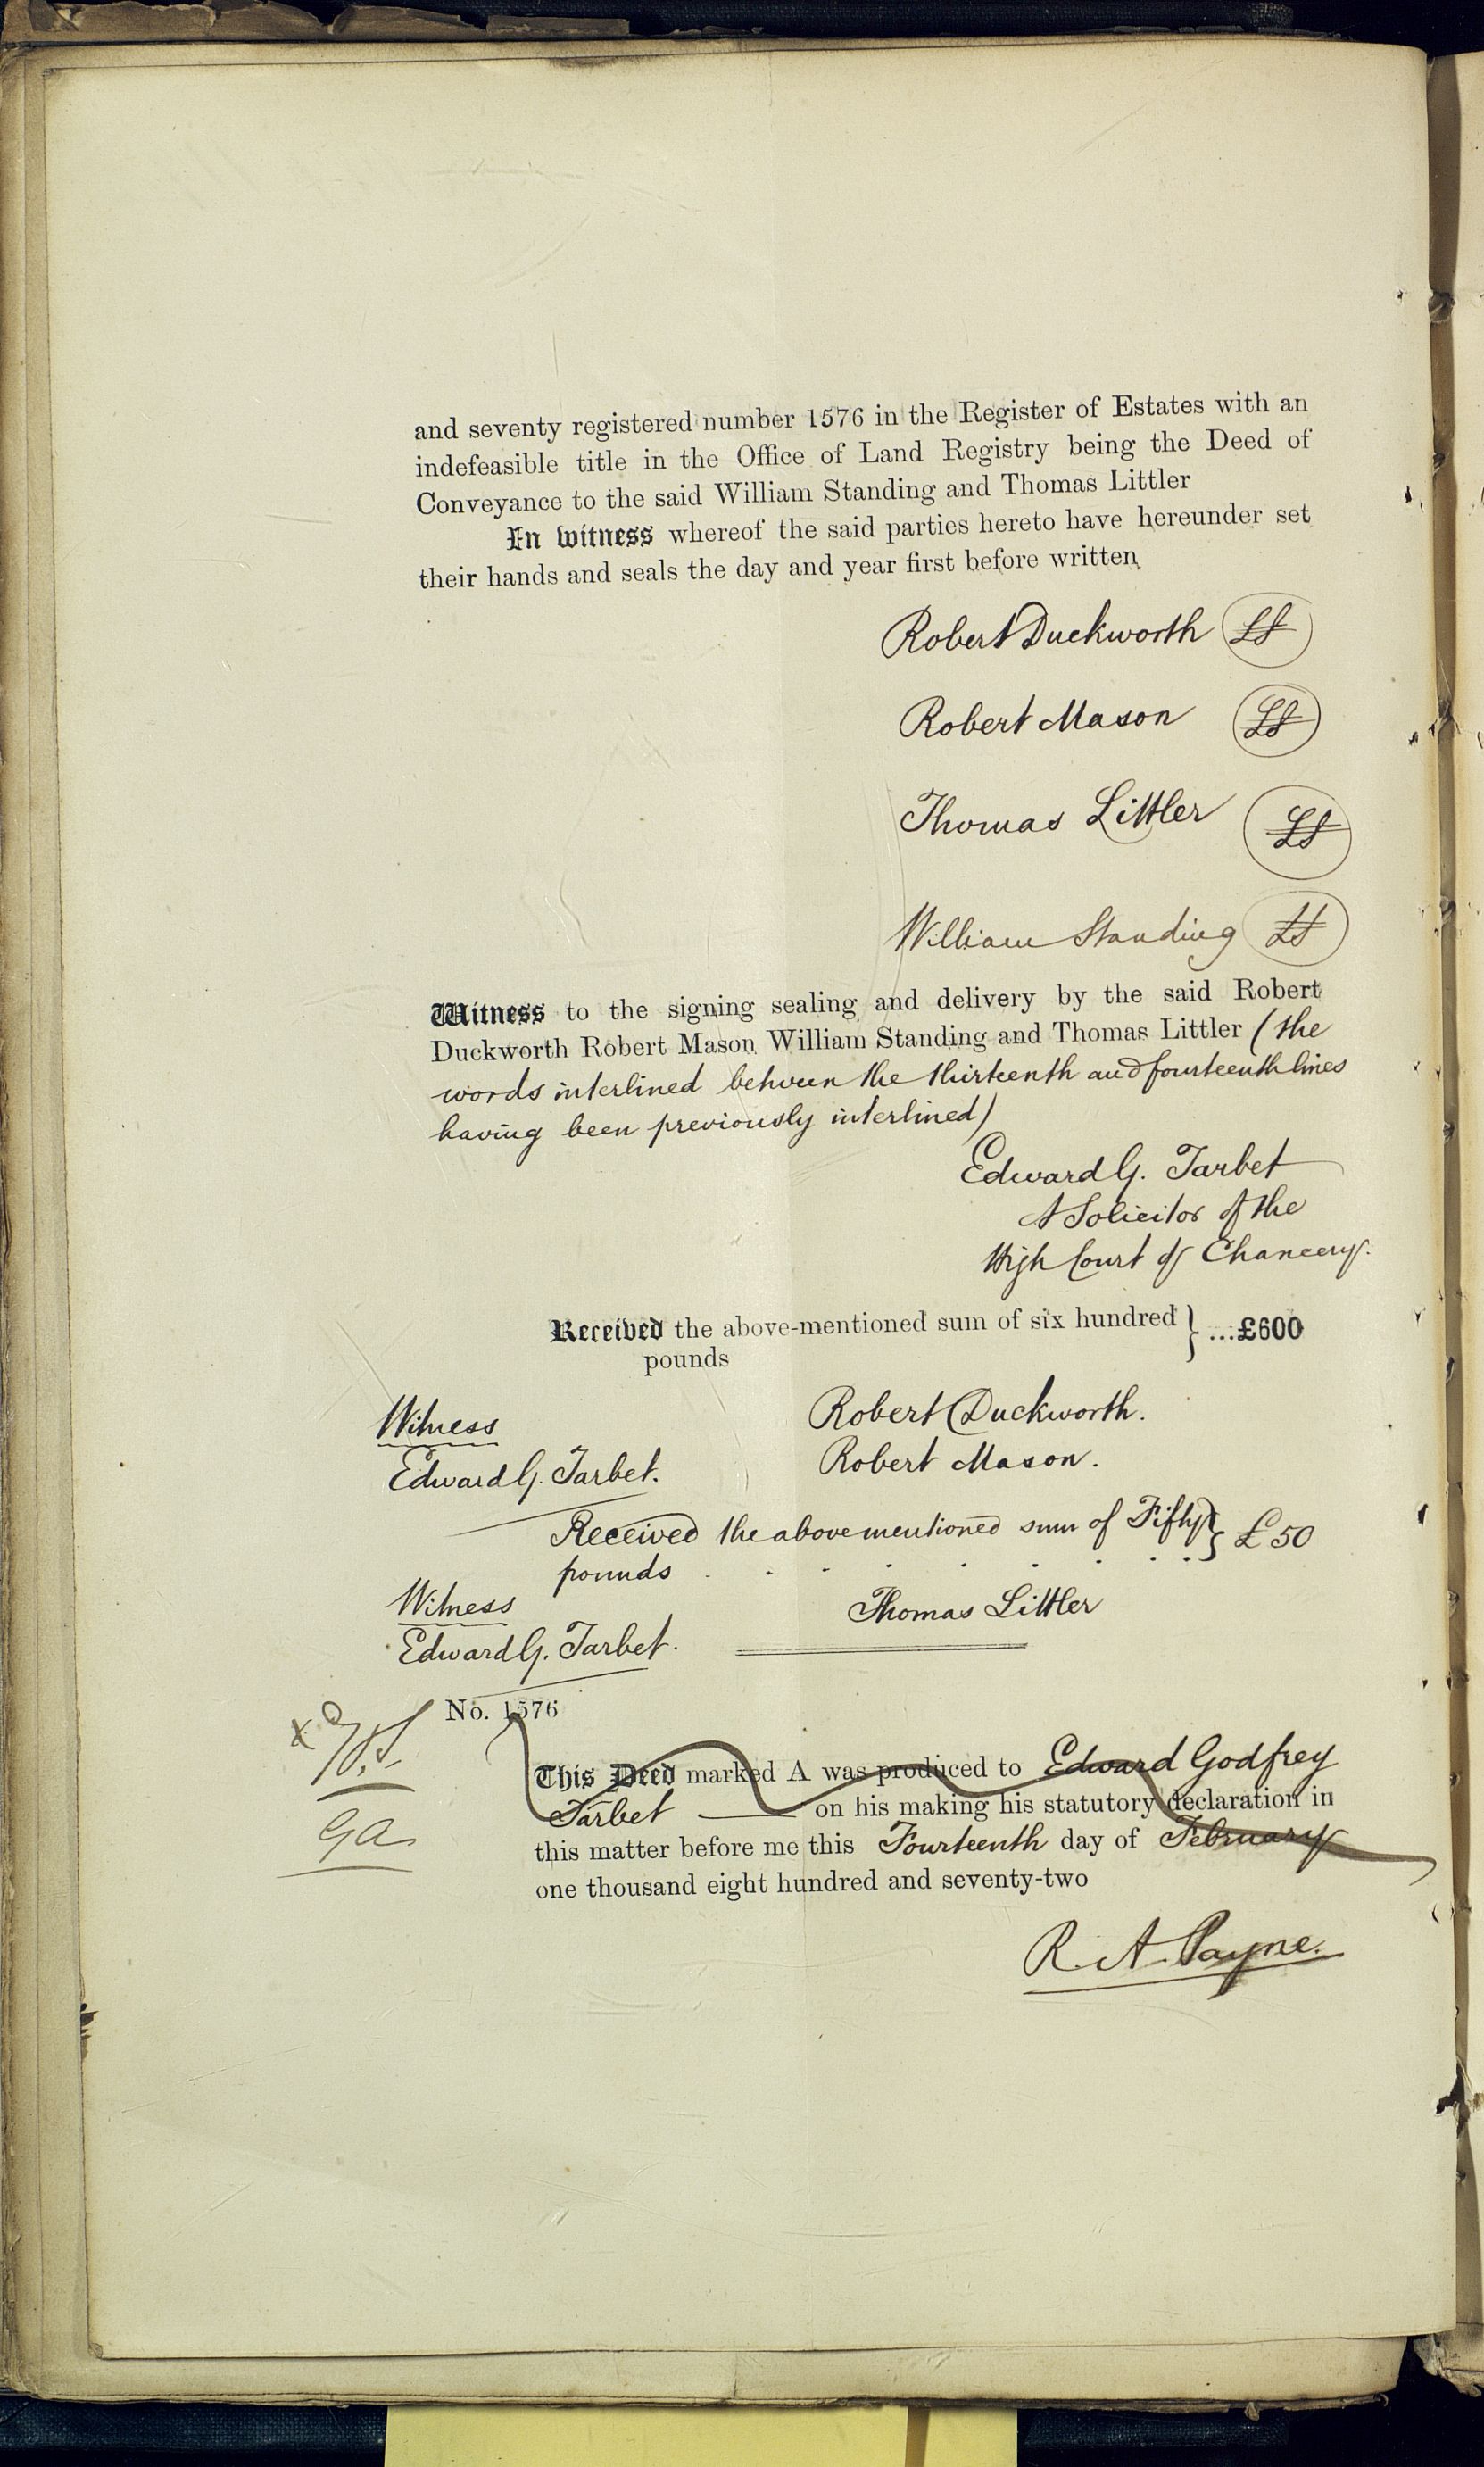 and seventy registered number 1576 in the Register of Estates with an
indefeasible title in the Office of Land Registry being the Deed of
Conveyance to the said William Standing and Thomas Littler
In witness whereof the said parties hereto have hereunder set
their hands and seals the day and year first before written
Robert Duckworth LS
Robert Mason LS
Thomas Littler LS
William Standing LS
Witness to the signing sealing and delivery by the said Robert
Duckworth Robert Mason William Standing and Thomas Littler (the
words interlined between the thirteenth and fourteenth lines
having been previously interlined)
Edward G. Tarbet
A Solicitor of the
High Court of Chancery.
Received the above-mentioned sum of six hundred } ...£600
pounds
Witness
Robert Duckworth.
Robert Mason.
Edward G. Tarbet.
Received the above mentioned sum of Fifty } £50
pounds . . . . . . . .
Witness
Thomas Littler
Edward G. Tarbet.
No. 1576
This Deed marked A was produced to Edward Godfrey
Tarbet on his making his statutory declaration in
this matter before me this Fourteenth day of February
one thousand eight hundred and seventy-two
R. A. Payne.